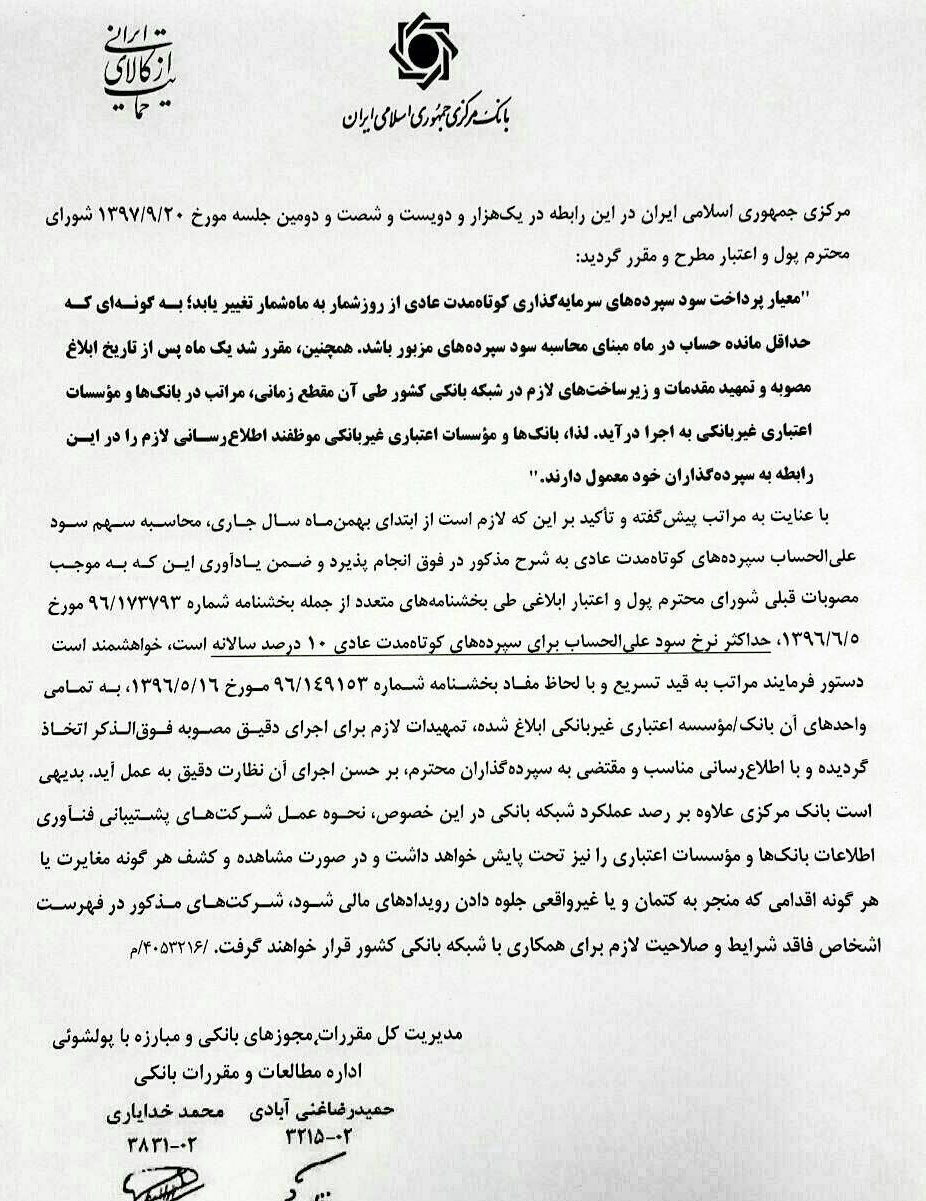 حمایت از کالای ایرانی
بانک مرکزی جمهوری اسلامی ایران
مرکزی جمهوری اسلامی ایران در این رابطه در یک‌هزار و دویست و شصت و دومین جلسه مورخ ۱۳۹۷/۹/۲۰ شورای
محترم پول و اعتبار مطرح و مقرر گردید:
"معیار پرداخت سود سپرده‌های سرمایه‌گذاری کوتاه‌مدت عادی از روزشمار به ماه‌شمار تغییر یابد؛ بـه گونـه‌ای کـه
حداقل مانده حساب در ماه مبنای محاسبه سود سپرده‌های مزبور باشد. همچنین، مقرر شد یک ماه پس از تاریخ ابلاغ
مصوبه و تمهید مقدمات و زیرساخت‌های لازم در شبکه بانکی کشور طی آن مقطع زمانی، مراتب در بانک‌ها و مؤسسات
اعتباری غیربانکی به اجرا درآید. لذا، بانک‌ها و مؤسسات اعتباری غیربانکی موظفند اطلاع‌رسـانی لازم را در ایـن
رابطه به سپرده‌گذاران خود معمول دارند."
با عنایت به مراتب پیش‌گفته و تأکید بر این که لازم است از ابتدای بهمن‌ماه سال جاری، محاسبه سـهم سـود
علی‌الحساب سپرده‌های کوتاه‌مدت عادی به شرح مذکور در فوق انجام پذیرد و ضمن یـادآوری ایـن کـه بـه موجـب
مصوبات قبلی شورای محترم پول و اعتبار ابلاغی طی بخشنامه‌های متعدد از جمله بخشنامه شماره ۹۶/۱۷۳۷۹۳ مورخ
۱۳۹۶/۶/۵، حداکثر نرخ سود علی‌الحساب برای سپرده‌های کوتاه‌مدت عادی ۱۰ درصد سالانه است، خواهشمند است
دستور فرمایند مراتب به قید تسریع و با لحاظ مفـاد بخشـنامه شـماره ۹۶/۱۴۹۱۵۳ مـورخ ۱۳۹۶/۵/۱۶، بـه تمـامی
واحدهای آن بانک/مؤسسه اعتباری غیربانکی ابلاغ شده، تمهیدات لازم برای اجرای دقیـق مصـوبه فوق‌الـذکر اتخـاذ
گردیده و با اطلاع‌رسانی مناسب و مقتضی به سپرده‌گذاران محترم، بر حسن اجرای آن نظارت دقیق به عمل آید. بدیهی
است بانک مرکزی علاوه بر رصد عملکرد شبکه بانکی در این خصوص، نحـوه عمـل شـرکت‌هـای پشـتیبانی فنـآوری
اطلاعات بانک‌ها و مؤسسات اعتباری را نیز تحت پایش خواهد داشت و در صورت مشاهده و کشف هر گونه مغایرت یا
هر گونه اقدامی که منجر به کتمان و یا غیرواقعی جلوه دادن رویدادهای مالی شـود، شـرکت‌هـای مـذکور در فهرسـت
اشخاص فاقد شرایط و صلاحیت لازم برای همکاری با شبکه بانکی کشور قرار خواهند گرفت. /۴۰۵۳۲۱۶/م
مدیریت کل مقررات، مجوزهای بانکی و مبارزه با پولشوئی
اداره مطالعات و مقررات بانکی
حمیدرضاغنی آبادی محمد خدایاری
۳۲۱۵-۰۲ ۳۸۳۱-۰۲